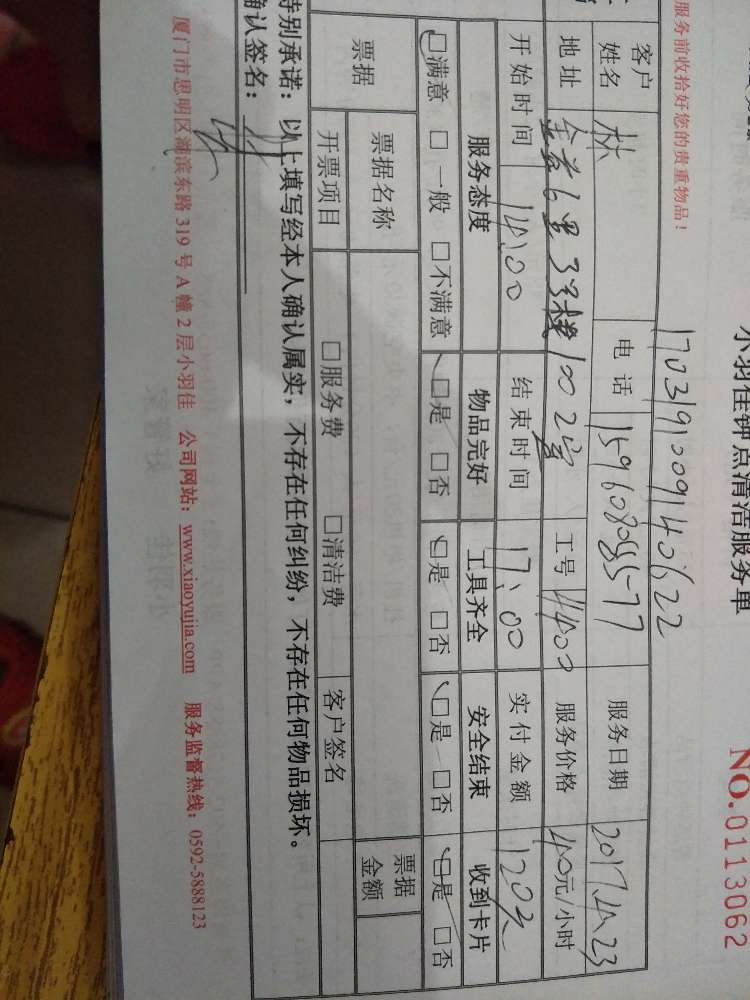 小羽佳钟点清洁服务单
NO.0113062
服务前收拾好您的贵重物品！
17031910091140622
客户姓名 林 电话 15960808577 服务日期 2017.4.23
地址 金尚6里33号楼1002室 工号 4400 服务价格 40元/小时
开始时间 14:00 结束时间 17:00 实付金额 120元
服务态度 物品完好 工具齐全 安全结束 收到卡片
☑满意 □一般 □不满意 ☑是 □否 ☑是 □否 ☑是 □否 ☑是 □否
票据 票据名称 票据金额
开票项目 □服务费 □清洁费 客户签名
特别承诺：以上填写经本人确认属实，不存在任何纠纷，不存在任何物品损坏。
确认签名：
厦门市思明区湖滨东路319号A幢2层小羽佳 公司网站：www.xiaoyujia.com 服务监督热线：0592-5888123